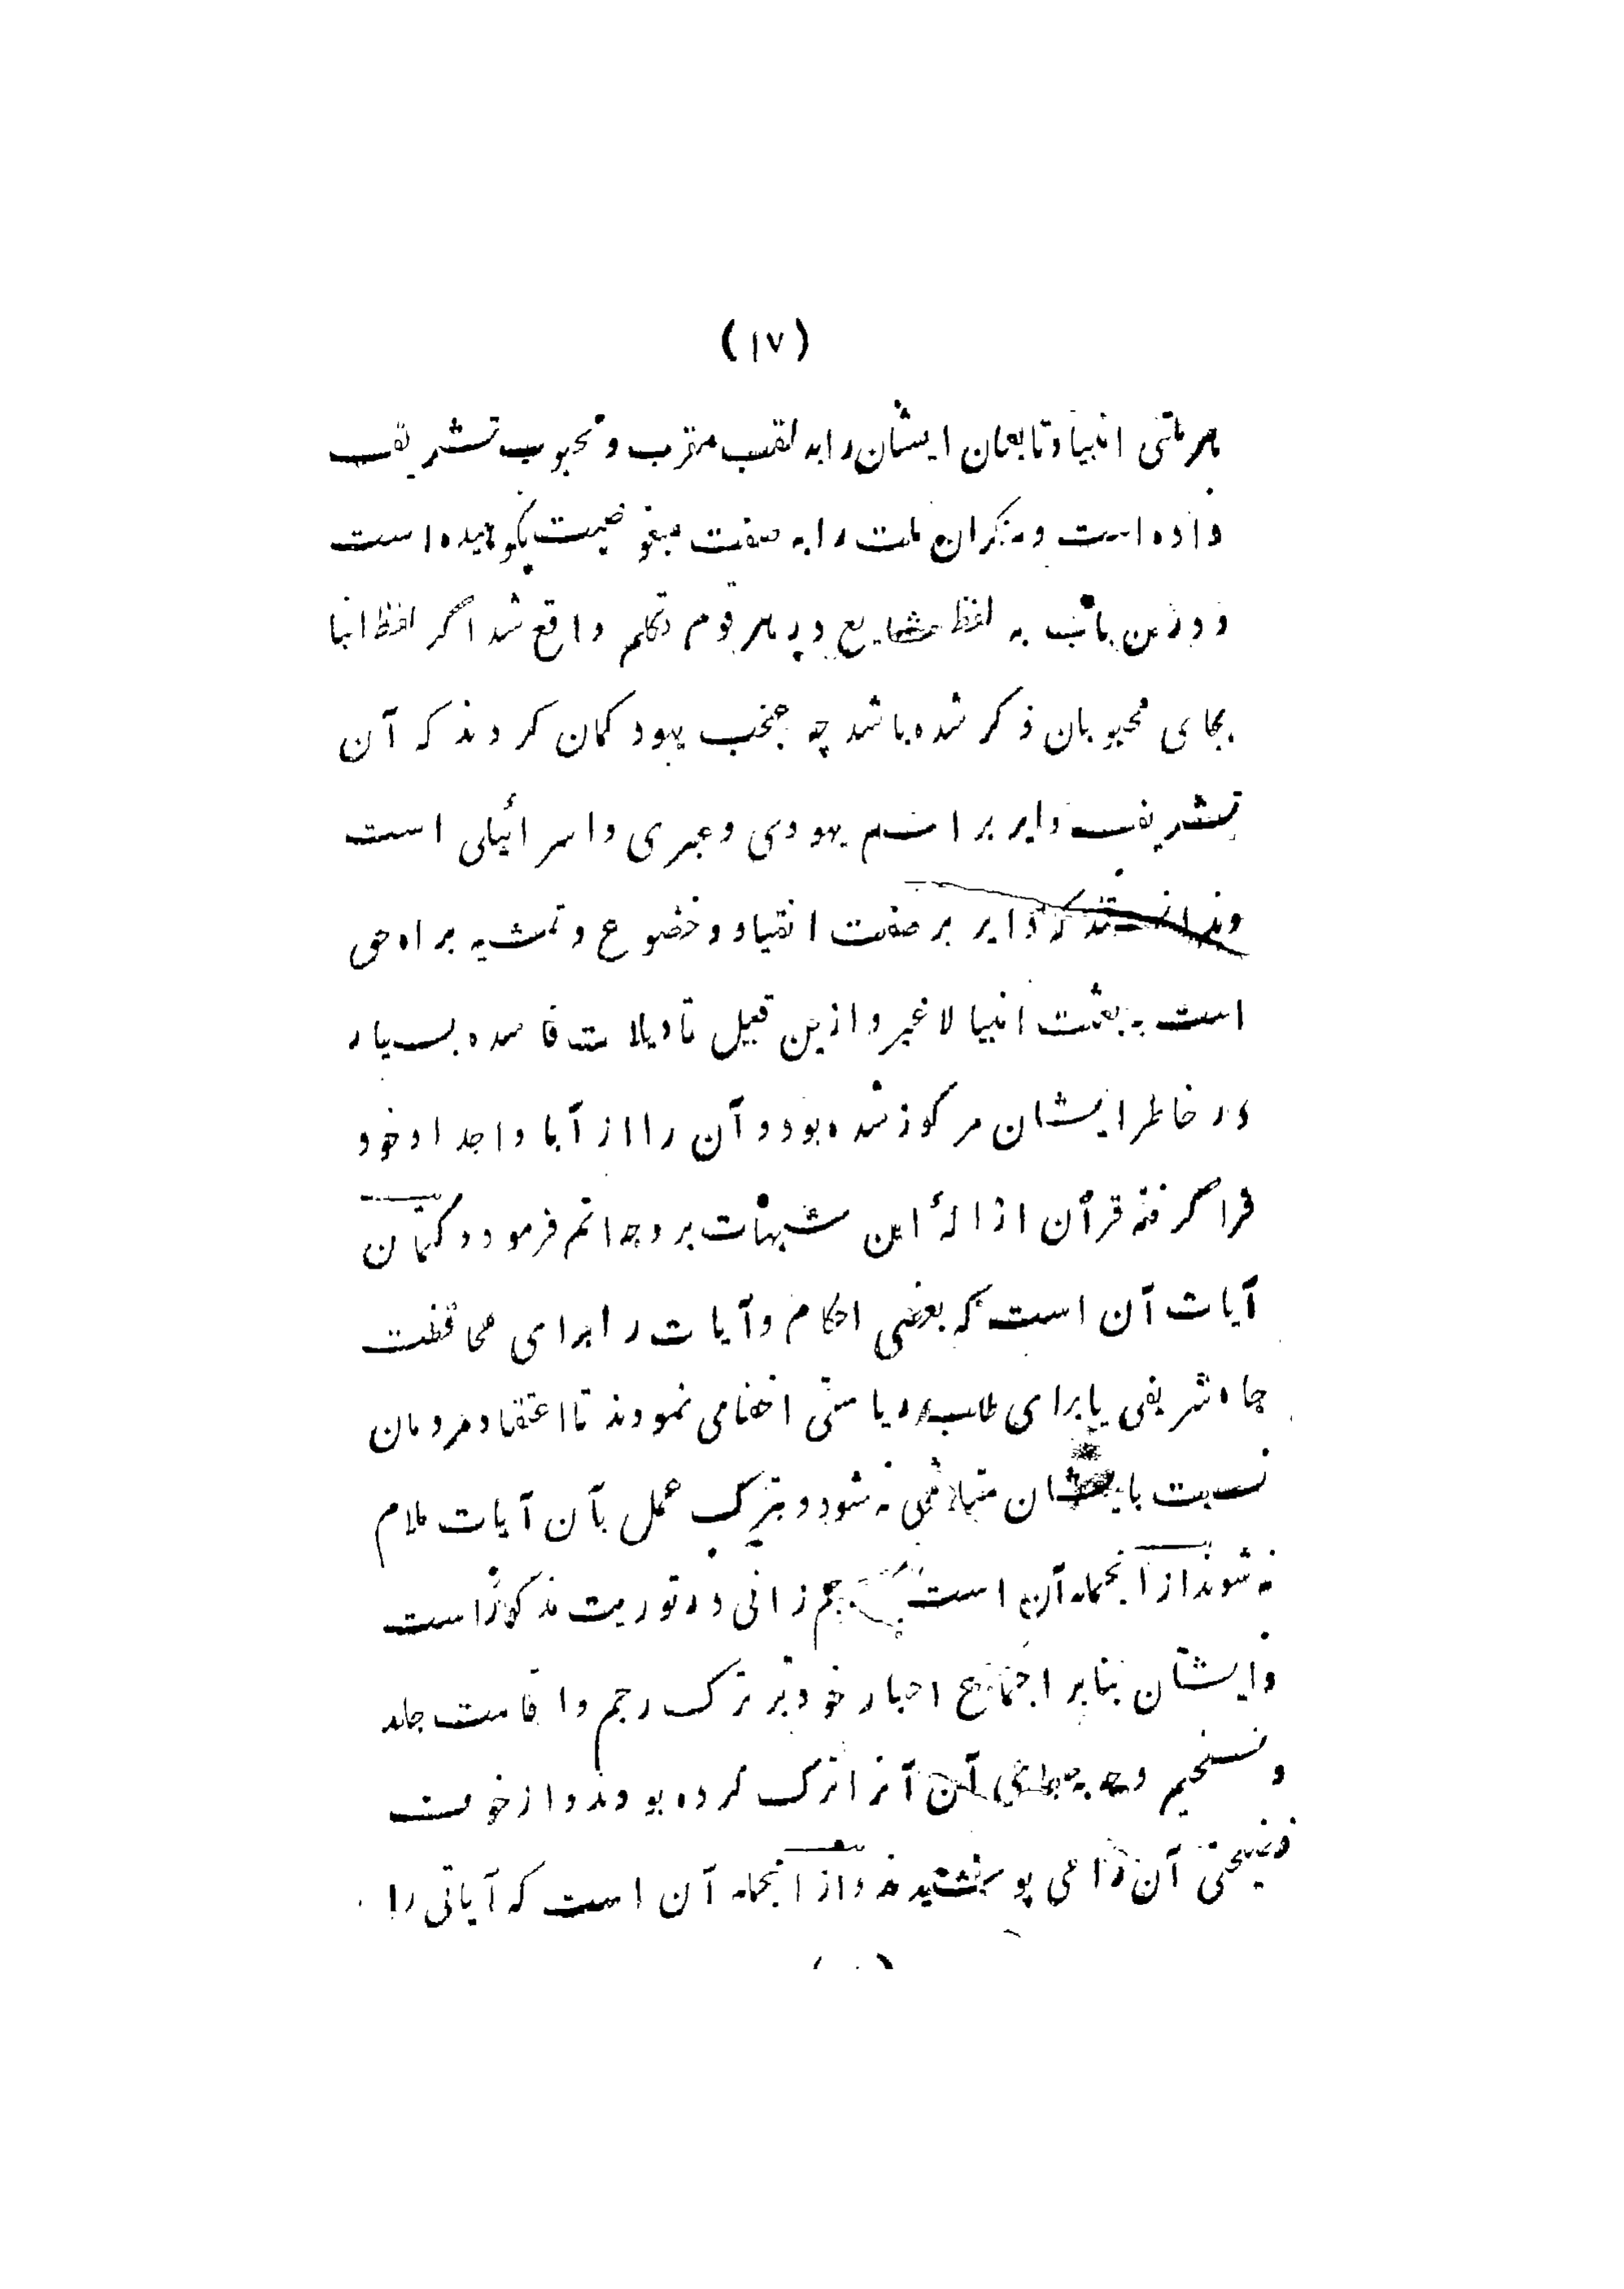 (۱۷)
هر ملتی انبیا و تابعان ایشان را به لقب مقرب و محبوب تشریف
داده است و منکران ملت را به صفت مبغوضیت نکوهیده است
و درین باب به لفظ شایع در هر قوم تکلم واقع شد اگر لفظ ابنا
بجای محبوبان ذکر شده باشد چه عجب یهود گمان کردند که آن
تشریف دایر بر اسم یهودی و عبری و اسرائیلی است
و ندانستند که دایر بر صفت انقیاد و خضوع و تمشیه براه حق
است به بعثت انبیا لا غیر و ازین قبیل تاویلات فاسده بسیار
در خاطر ایشان مرکوز شده بود و آن را از آبا و اجداد خود
فرا گرفته قرآن ازالهٔ این شبهات بر وجه اتم فرمود و کتمان
آیات آن است که بعضی احکام و آیات را برای محافظت
جاه شریفی یا برای طلب ریاستی اخفا می نمودند تا اعتقاد مردمان
نسبت بایشان متلاشی نه شود و بترک عمل بآن آیات ملام
نه شوند از آنجمله آن است که رجم زانی در توریت مذکور است
و ایشان بنابر اجماع احبار خود بر ترک رجم و اقامت جلد
و تسخیم وجه بجای آن آنرا ترک کرده بودند و از خوف
فضیحتی آن را می پوشیدند و از آنجمله آن است که آیاتی را